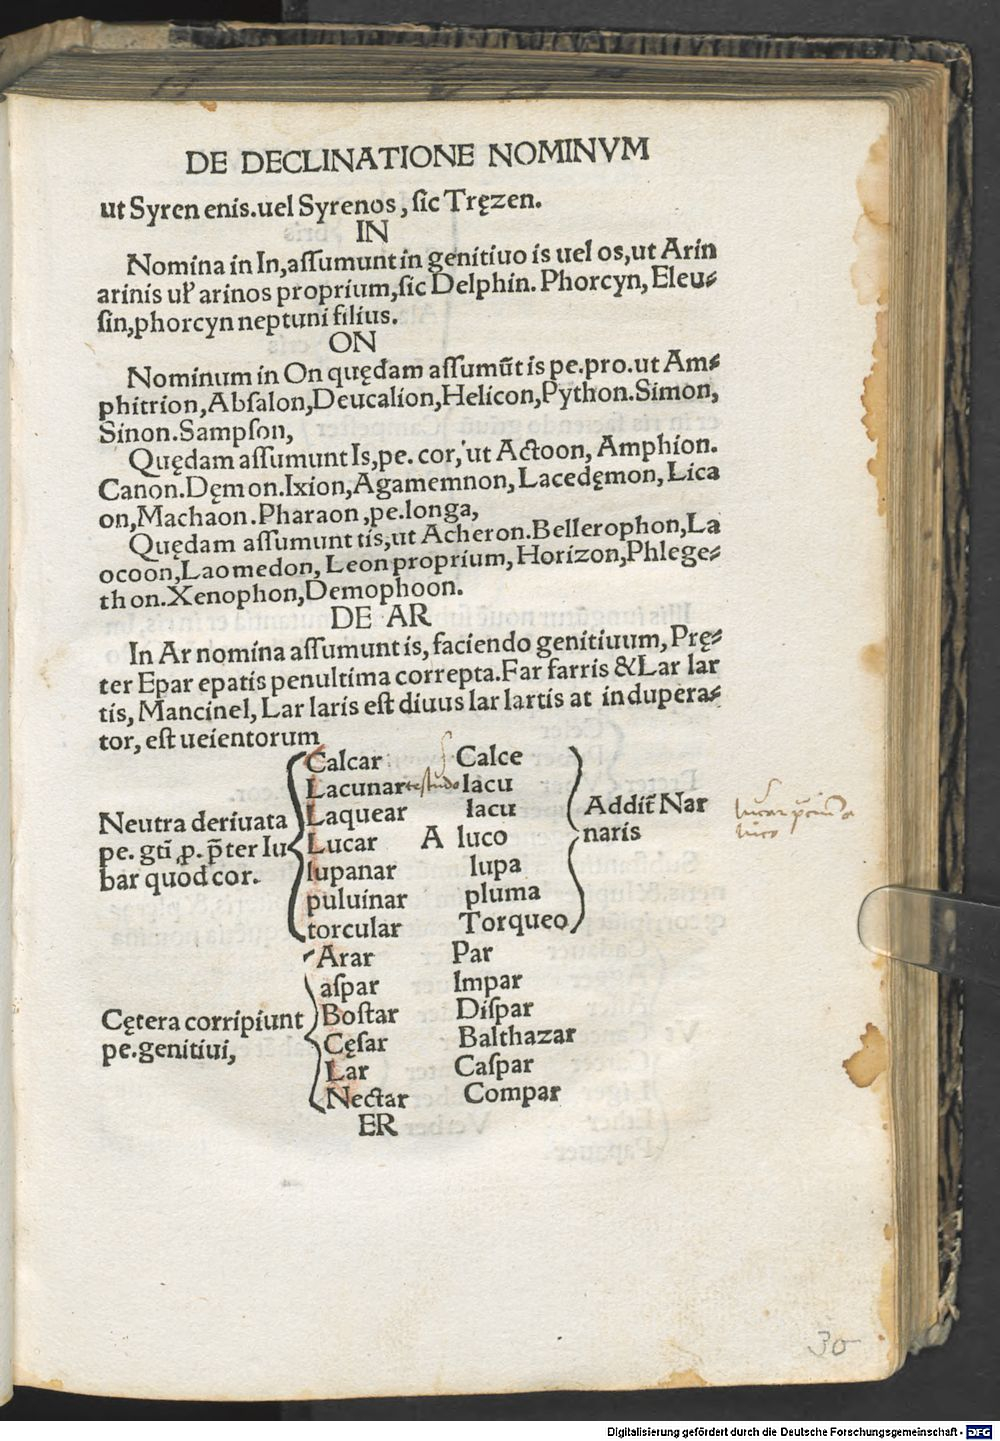 DE DECLINATIONE NOMINVM
ut Syren enis.uel Syrenos, ſic Tręzen.
IN
Nomina in In,aſſumunt in genitiuo is uel os,ut Arin
arinis uł arinos proprium,ſic Delphin. Phorcyn, Eleu⸗
ſin,phorcyn neptuni filius.
ON
Nominum in On quędam aſſumūt is pe.pro.ut Am⸗
phitrion,Abſalon,Deucalion,Helicon,Python.Simon,
Sinon.Sampſon,
Quędam aſſumunt Is,pe.cor,ut Actoon, Amphion.
Canon.Dęmon.Ixion,Agamemnon,Lacedęmon,Lica
on,Machaon.Pharaon,pe.longa,
Quędam aſſumunt tis,ut Acheron.Bellerophon,La
ocoon,Laomedon, Leon proprium, Horizon,Phlege⸗
thon.Xenophon,Demophoon.
DE AR
In Ar nomina aſſumunt is, faciendo genitiuum, Prę⸗
ter Epar epatis penultima correpta.Far farris & Lar lar
tis, Mancinel, Lar laris eſt diuus lar lartis at indupera⸗
tor, eſt ueientorum
Neutra deriuata
pe. gtī p. p̄ter Iu
bar quod cor.
Calcar Calce
Lacunar testudo lacu
Laquear lacu
Lucar A luco
lupanar lupa
puluinar pluma
torcular Torqueo
Addit̄ Nar
naris
lucar
luco
Cętera corripiunt
pe.genitiui,
Arar Par
aſpar Impar
Boſtar Diſpar
Cęſar Balthazar
Lar Caſpar
Nectar Compar
ER
30
Digitalisierung gefördert durch die Deutsche Forschungsgemeinschaft - DFG